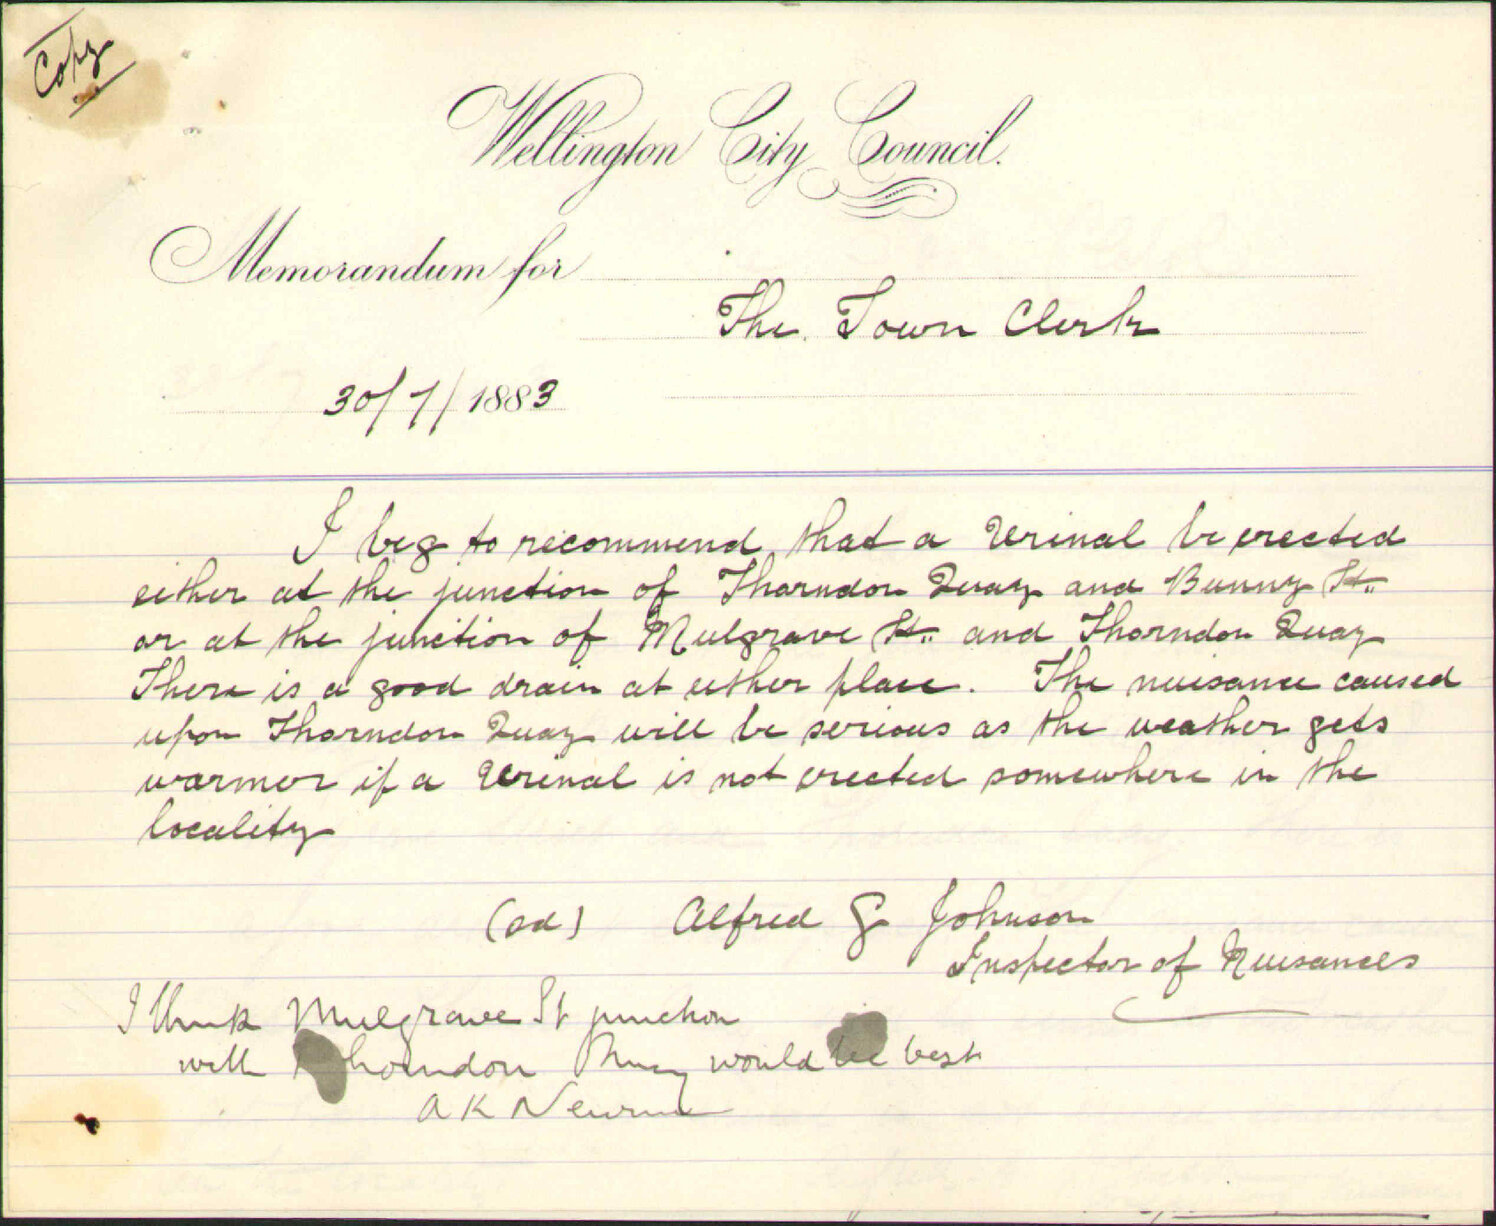 Copy
Wellington City Council.
Memorandum for
The Town Clerk
30/7/1883
I beg to recommend that a Urinal be erected
either at the junction of Thorndon Quay and Bunny St.
or at the junction of Mulgrave St. and Thorndon Quay
There is a good drain at either place. The nuisance caused
upon Thorndon Quay will be serious as the weather gets
warmer if a Urinal is not erected somewhere in the
locality
(sd) Alfred G Johnson
Inspector of Nuisances
I think Mulgrave St junction
with Thorndon Quay would be best
A K Newman